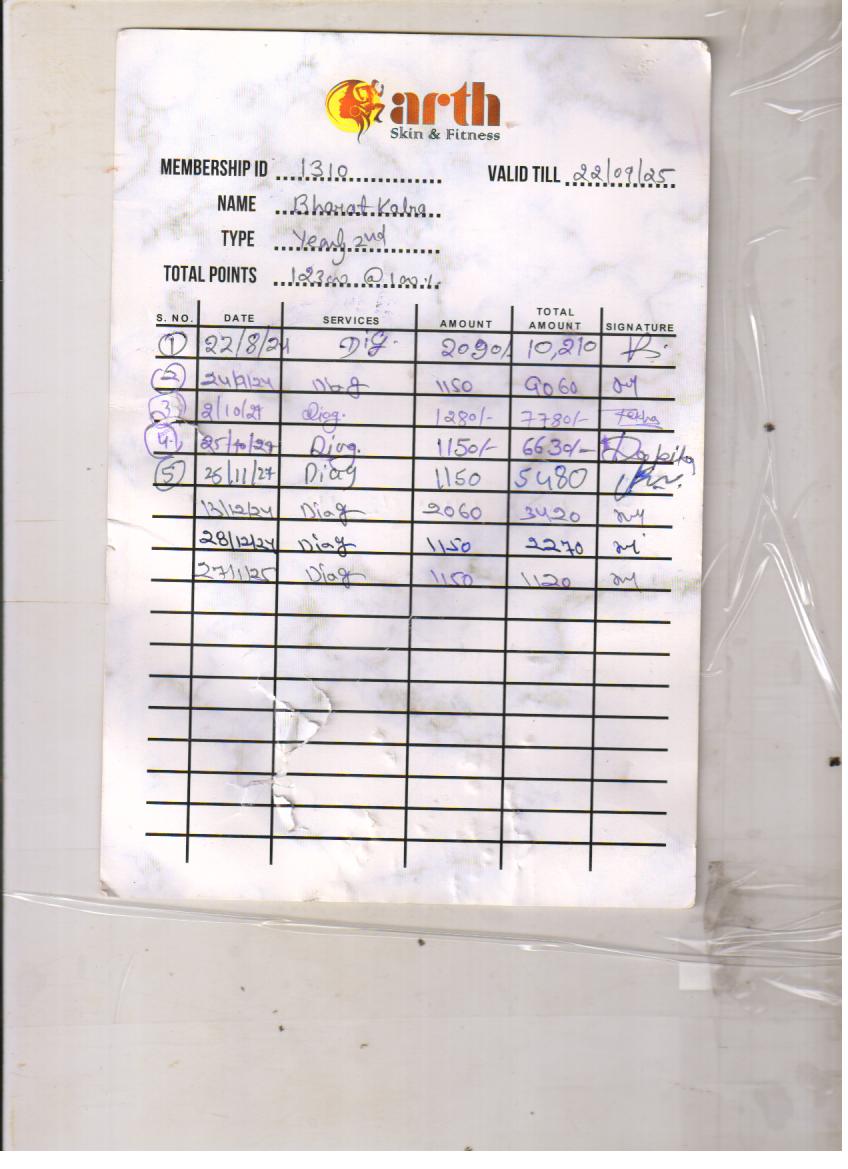 arth
Skin & Fitness
MEMBERSHIP ID 1310 VALID TILL 22/09/25
NAME Bharat Kalra
TYPE Yearly 2nd
TOTAL POINTS 12300 @ 100%
S. NO. DATE SERVICES AMOUNT TOTAL AMOUNT SIGNATURE
1 22/8/24 Dig. 2090/- 10,210
2 24/9/24 Diag 1150 9060
3 2/10/24 Diag. 1280/- 7780/-
4 25/10/24 Diag. 1150/- 6630/-
5 26/11/24 Diag 1150 5480
13/12/24 Diag 2060 3420
28/12/24 Diag 1150 2270
27/1/25 Diag 1150 1120